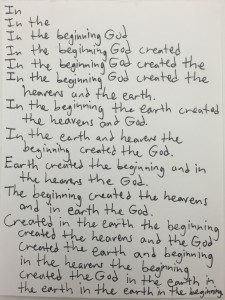 In
In the
In the beginning God
In the beginning God created
In the beginning God created the
In the beginning God created the
heavens and the earth.
In the beginning the earth created
the heavens and God.
In the earth and heavens the
beginning created the God.
Earth created the beginning and in
the heavens the God.
The beginning created the heavens
and in earth the God.
Created in the earth the beginning
created the heavens and the God
created the earth and beginning
in the heavens the beginning
created the God in the earth in
the earth in the earth in the beginning